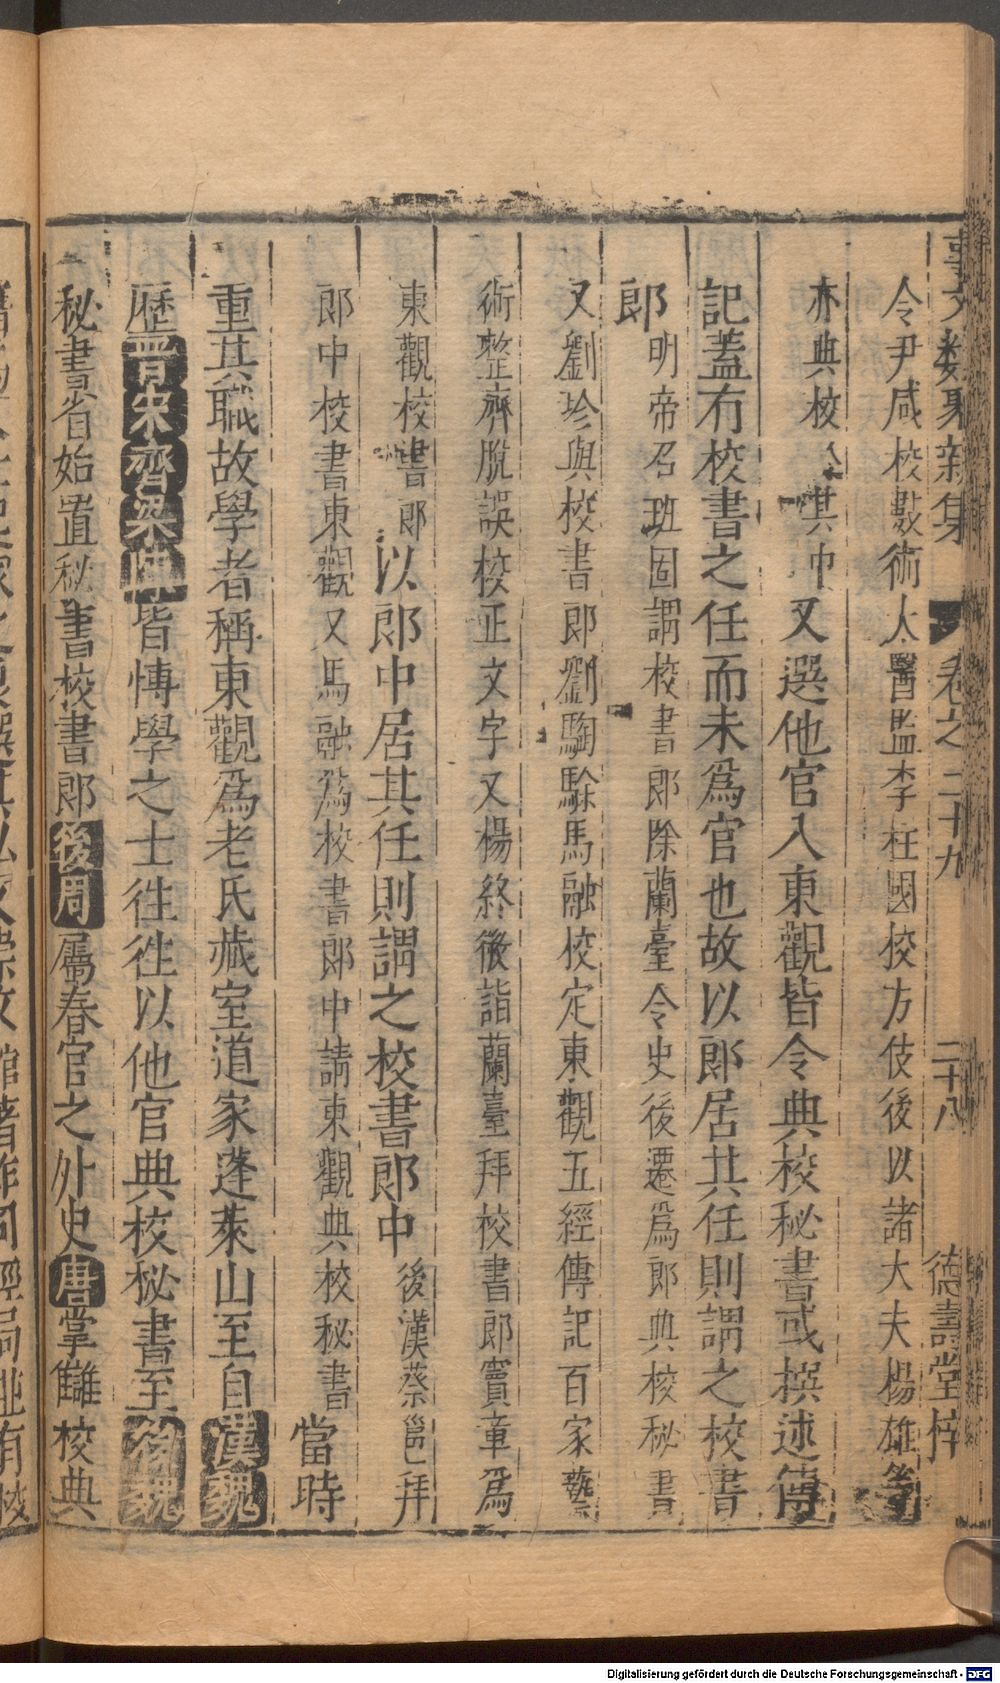 事文類聚新集 卷之二十九 二十八 德壽堂梓
令尹咸校數術太醫監李柱國校方伎後以諸大夫楊雄等
亦典校 其中又選他官入東觀皆令典校秘書或撰述傳
記蓋有校書之任而未爲官也故以郎居其任則謂之校書
郎明帝召班固謂校書郎除蘭臺令史後遷爲郎典校秘書
又劉珍與校書郎劉騊駼馬融校定東觀五經傳記百家藝
術整齊脫誤校正文字又楊終徵詣蘭臺拜校書郎竇章爲
東觀校書郎以郎中居其任則謂之校書郎中後漢蔡邕拜
郎中校書東觀又馬融爲校書郎中請東觀典校秘書當時
重其職故學者稱東觀爲老氏藏室道家蓬萊山至自漢魏
歷晉宋齊梁陳皆博學之士往往以他官典校秘書至後魏
秘書省始置秘書校書郎後周屬春官之外史唐掌讎校典
Digitalisierung gefördert durch die Deutsche Forschungsgemeinschaft - DFG